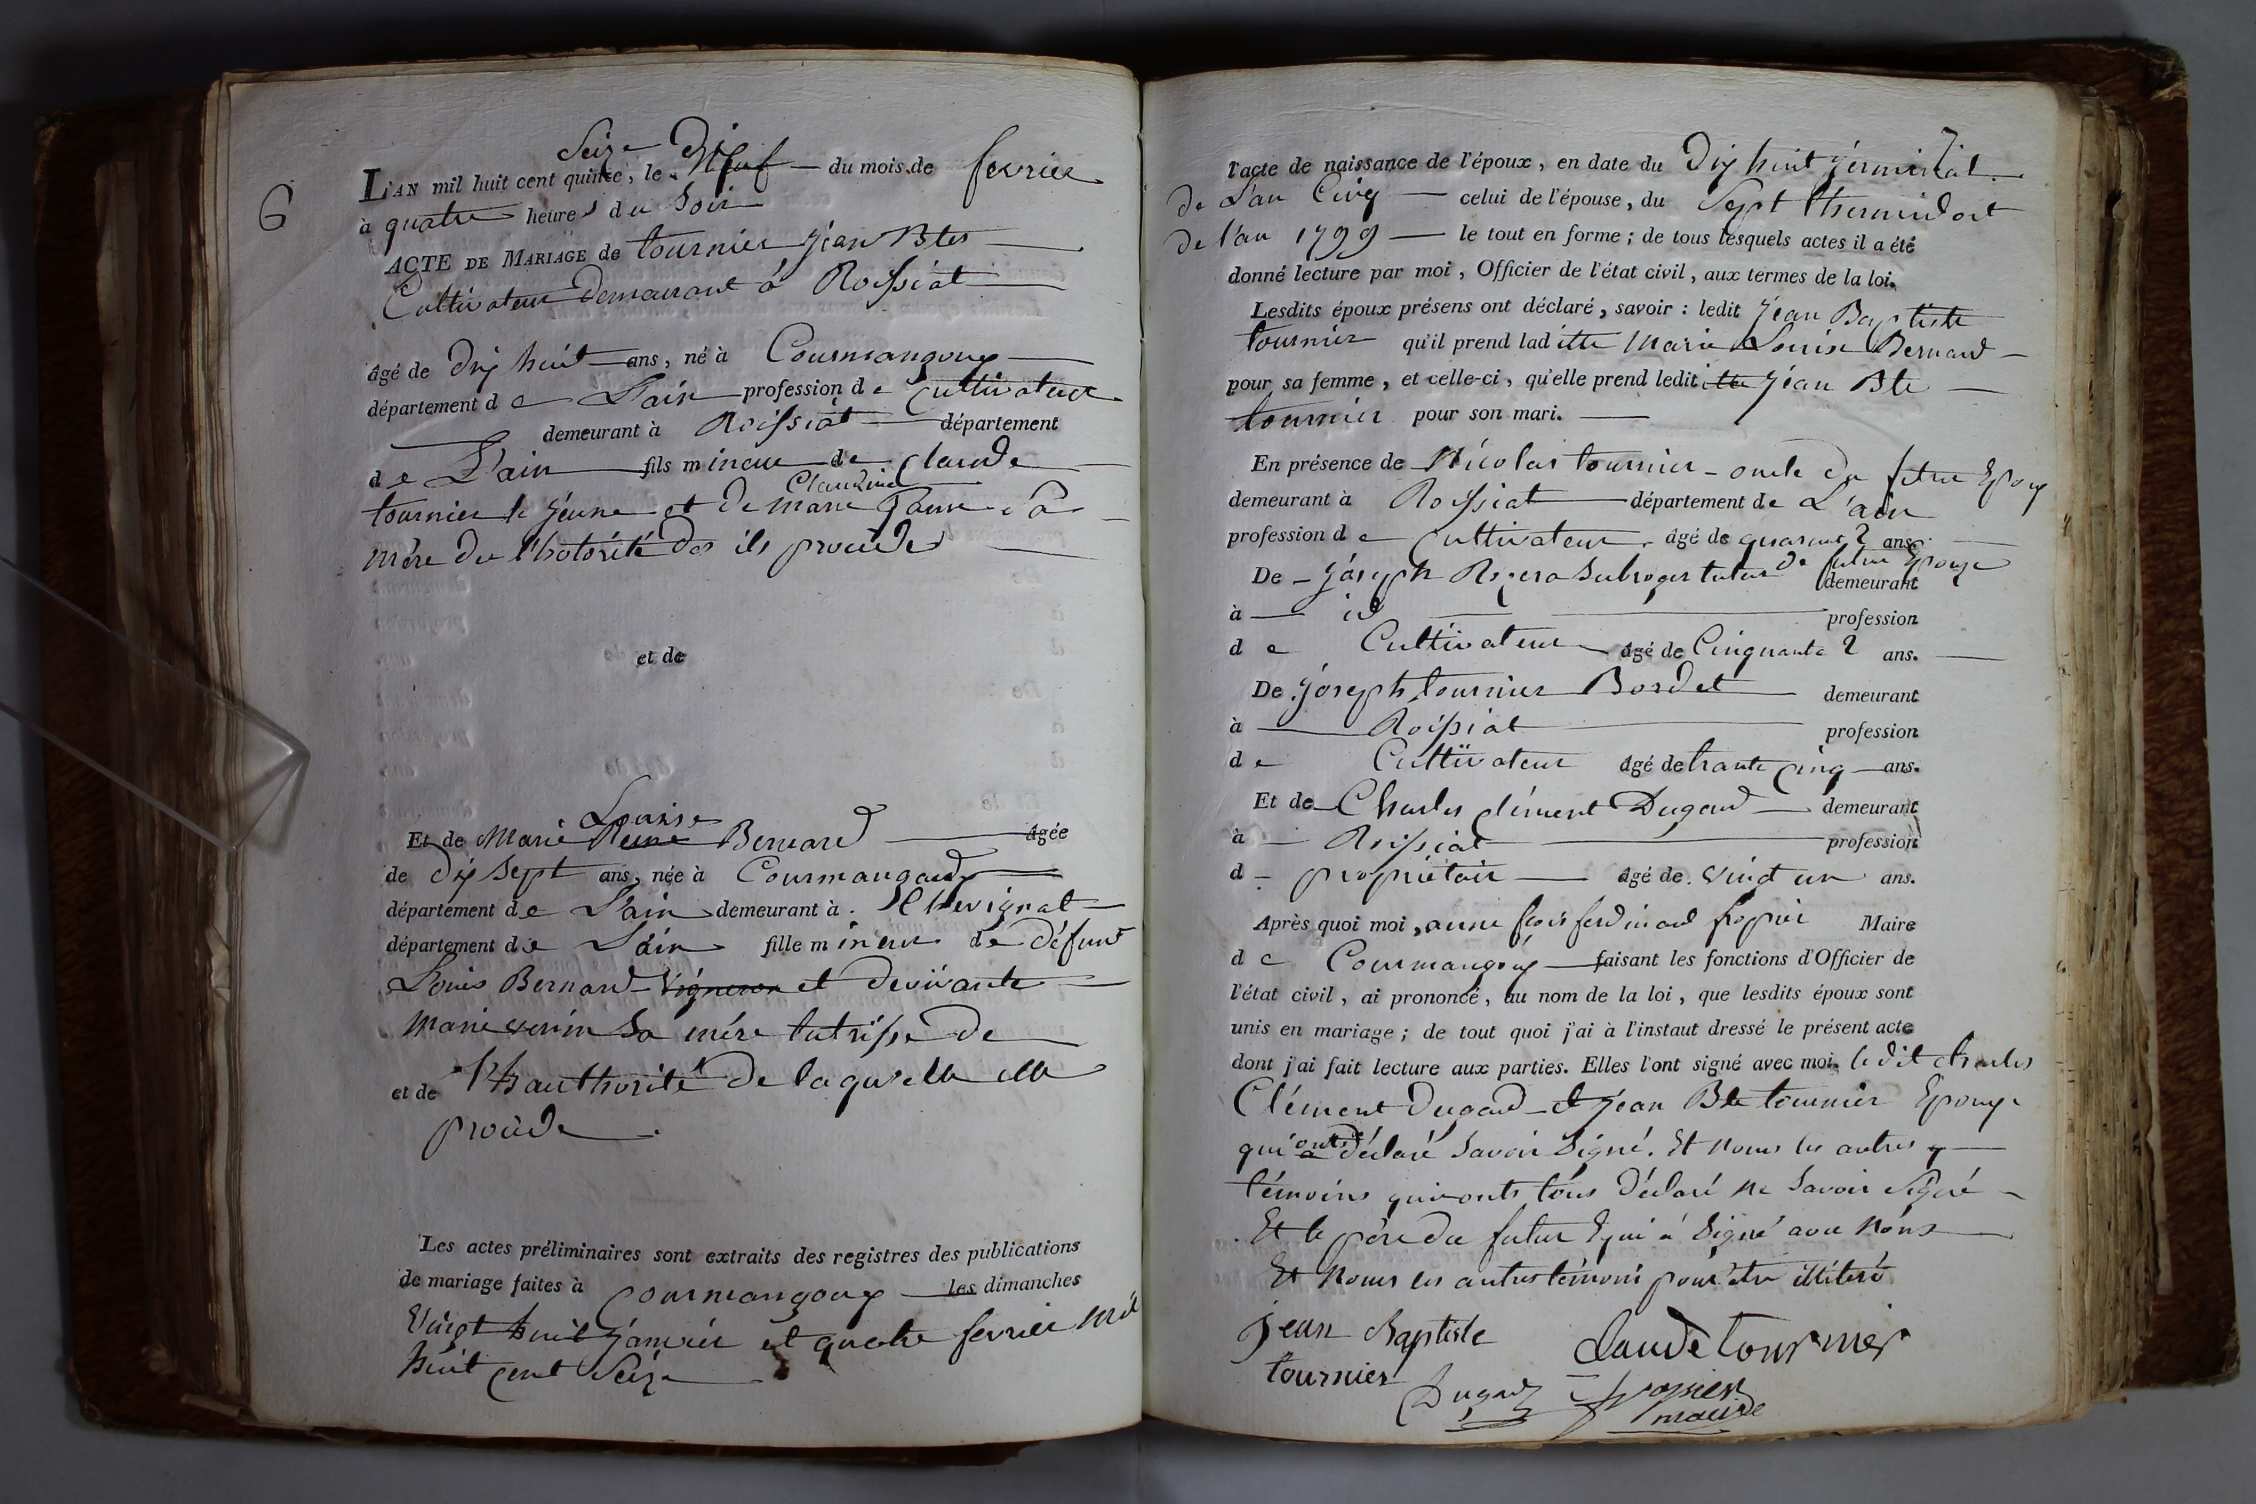 6
Seize Dix
L'AN mil huit cent quinze, le Neuf du mois de fevrier
à quatre heures du Soir
ACTE DE MARIAGE de tournier jean Bte
Cultivateur demeurant à Roissiat
âgé de Dix huit ans, né à Courmangoux
département de L'ain profession de Cultivateur
demeurant à Roissiat département
de L'ain fils mineur de Claude
Claudine
tournier le jeune et de marie
mère de l'hotorité des ils procéde
et de
Louise
Et de Marie Reine Bernard âgée
de dix Sept ans, née à Courmangoux
département de L'ain demeurant à Chevignat
département de L'ain fille mineur de défunt
Louis Bernard Vigneron et de vivante
marie verin Sa mére tutrisse de
et de l'hauthorité de laquelle elle
procéde
Les actes préliminaires sont extraits des registres des publications
de mariage faites à Courmangoux les dimanches
Vingt huit janvier et quatre fevrier mil
huit cent Seize
7
l'acte de naissance de l'époux, en date du Dix huit germinal
de L'an Cinq celui de l'épouse, du Sept thermidort
de l'an 1799 le tout en forme ; de tous lesquels actes il a été
donné lecture par moi, Officier de l'état civil, aux termes de la loi.
Lesdits époux présens ont déclaré, savoir : ledit jean Baptiste
tournier qu'il prend laditte Marie Louise Bernard
pour sa femme, et celle-ci, qu'elle prend ledit jean Bte
tournier pour son mari.
En présence de Nicolas tournier oncle du futur Epoux
demeurant à Roissiat département de L'ain
profession de Cultivateur âgé de quarante 2 ans.
De joseph subroger tuteur de future Epouse demeurant
à id profession
de Cultivateur âgé de Cinquante 2 ans.
De joseph tournier Bordet demeurant
à Roissiat profession
de Cultivateur âgé de trante cinq ans.
Et de Charles clément Dugad demeurant
à Roissiat profession
d propriétair âgé de vindt un ans.
Après quoi moi, anne ferdinand Maire
de Courmangoux faisant les fonctions d'Officier de
l'état civil, ai prononcé, au nom de la loi, que lesdits époux sont
unis en mariage ; de tout quoi j'ai à l'instaut dressé le présent acte
dont j'ai fait lecture aux parties. Elles l'ont signé avec moi. le dit charles
Clément Dugad et jean Bte tournier Epoux
onts
qui a déclaré Savoir Signé. Et nous les autres
témoins qui onts tous Déclaré ne Savoir Signé
Et le pére du futur qui a Signé avec Nous
Et Nous les autres témoins pour être illiteré
jean Baptiste
tournier
Claude tournier
Dugad
maire